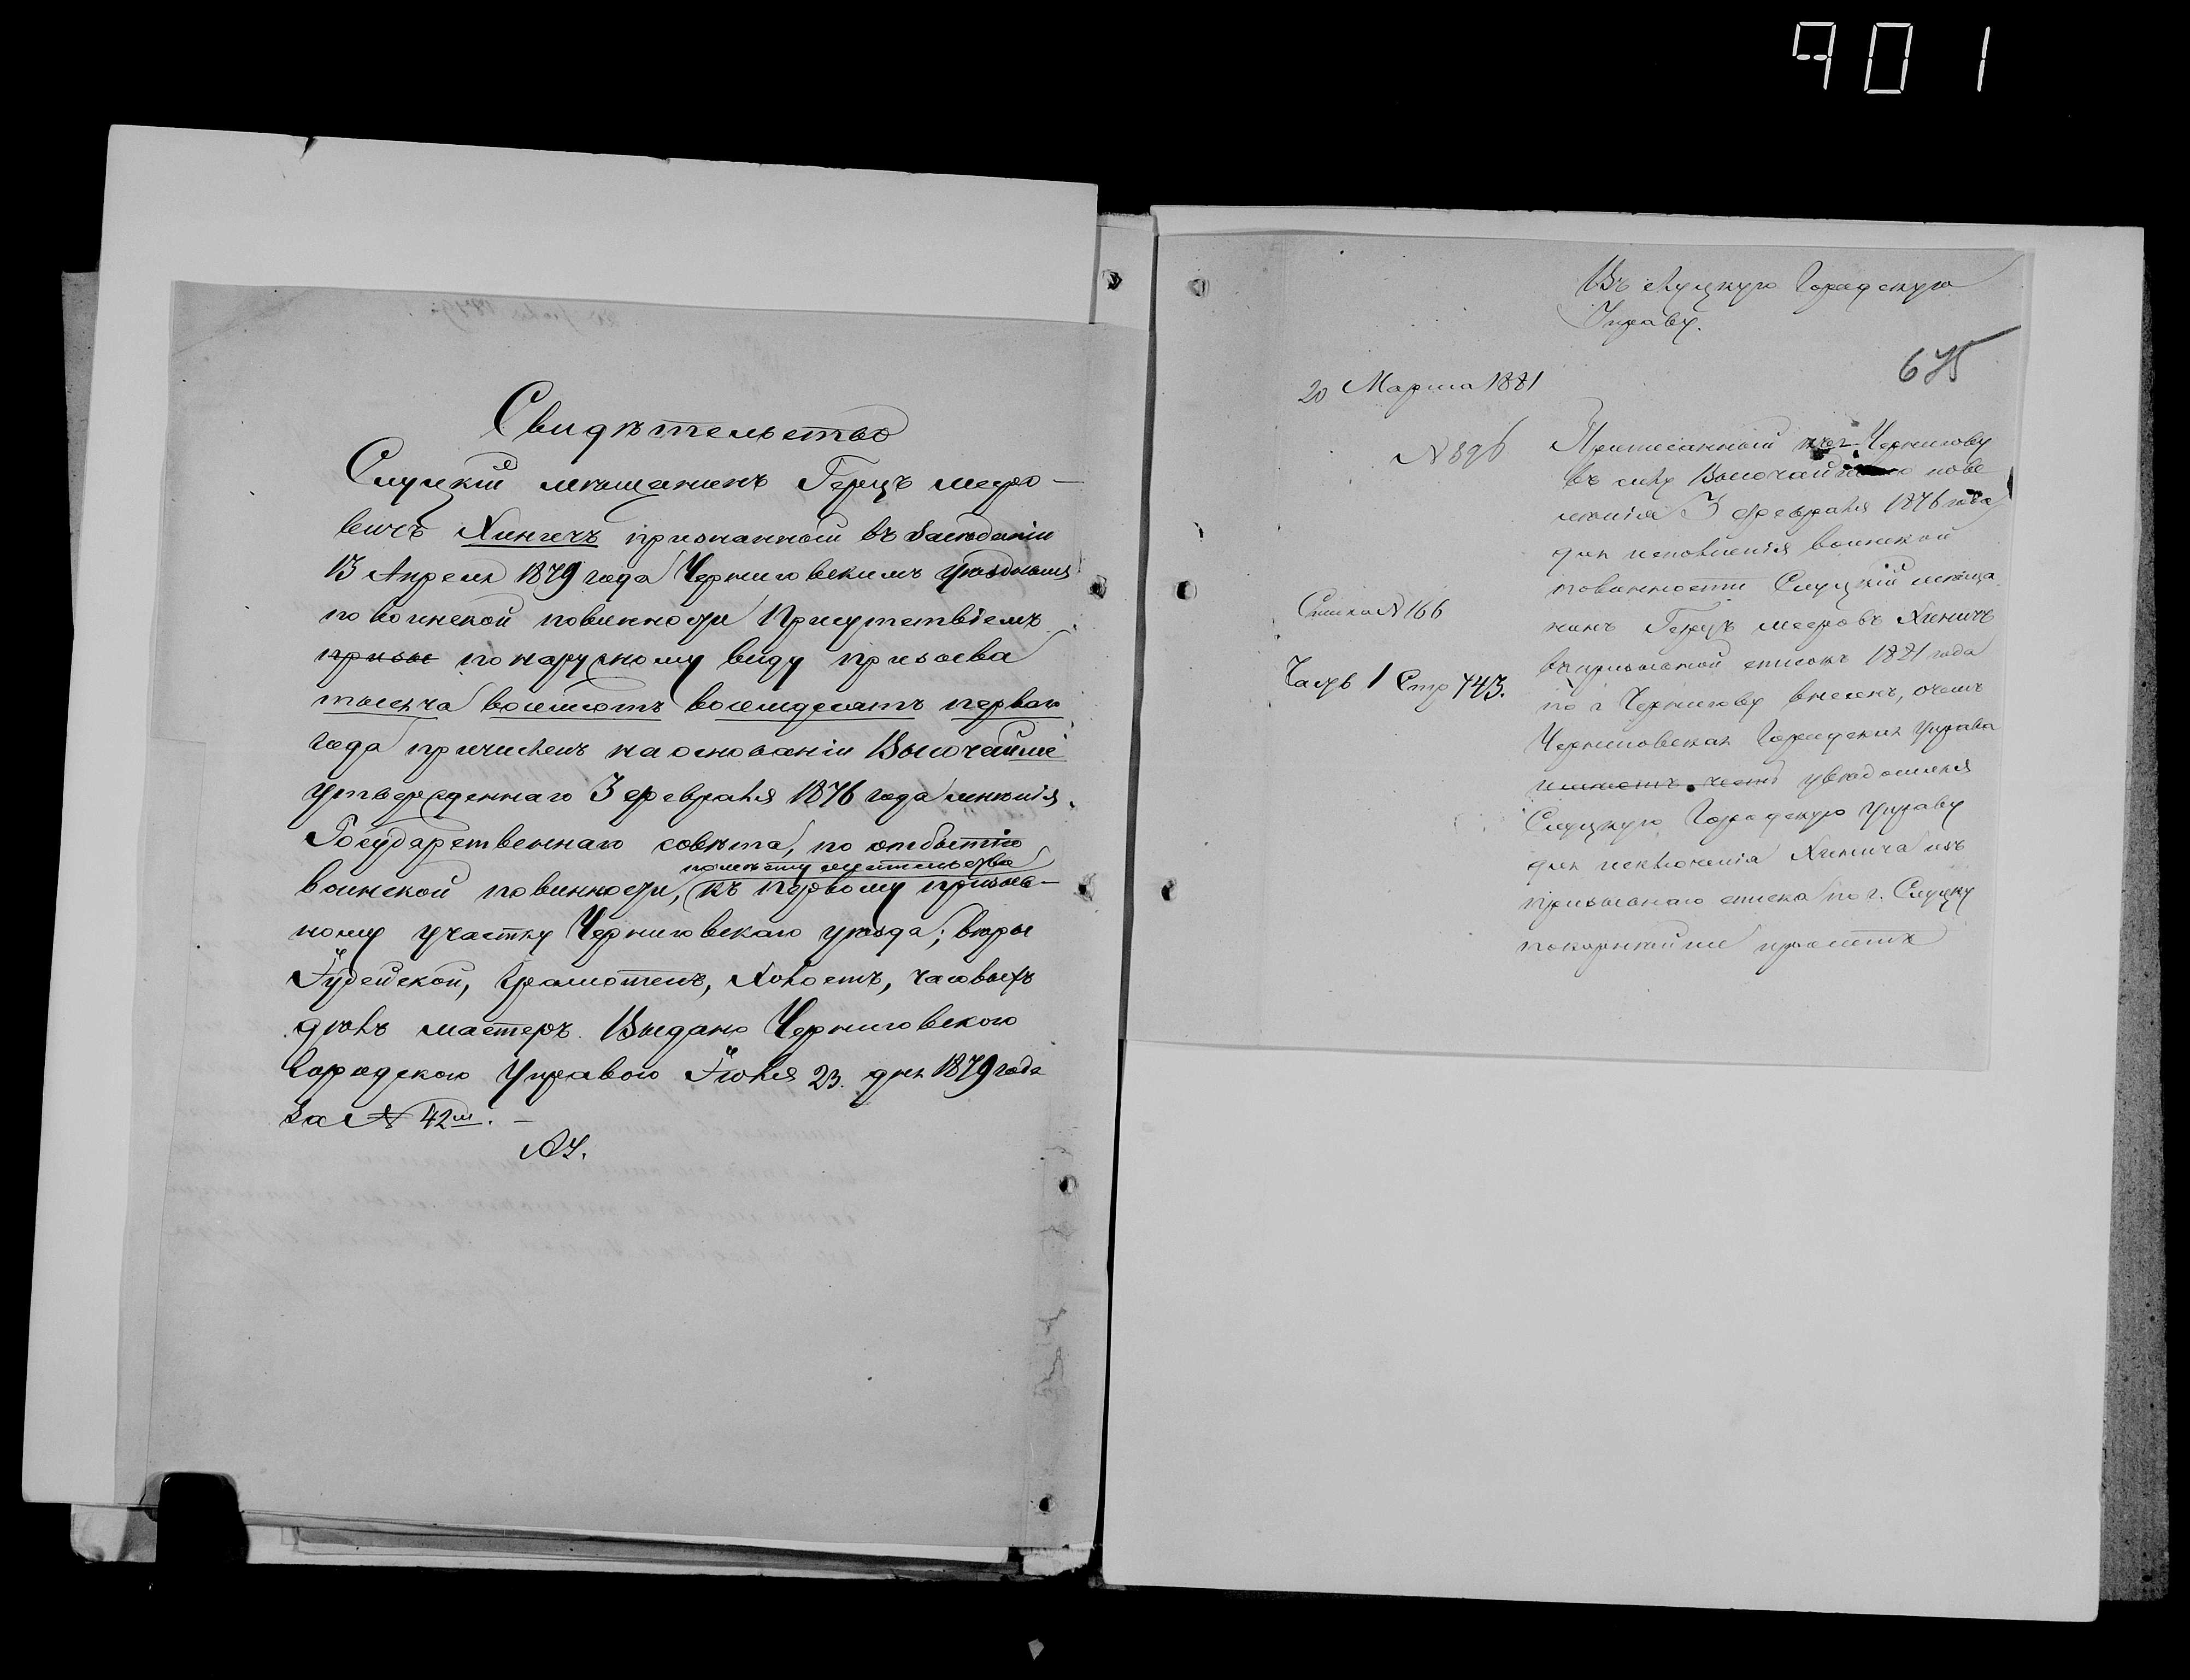 901
Свидѣтельство
Слуцкій мѣщанинъ Герцъ Меро-
вичъ Хиничъ признанный въ Засѣданіи
13 Апреля 1879 года Черниговскимъ Уѣзднымъ
по воинской повинности Присутствіемъ
призыв по наружному виду призыва
тысяча восемсотъ восемдесятъ перваго
года причисленъ на основаніи Высочайше
утвержденнаго 3 февраля 1876 года мнѣнія
Государственнаго совѣта, по отбытію
по мѣсту жительства
воинской повинности, къ первому призыв-
ному участку Черниговскаго уѣзда; вѣры
Іудейской, Грамотенъ, Холостъ, часовыхъ
дѣлъ мастеръ. Выдано Черниговскою
Городскою Управою Іюля 23 дня 1879 года
за № 42м. –
Въ Слуцкую Городскую
Управу.
675
20 Марта 1881
№ 896
Приписанный къ г. Чернигову
въ силу Высочайшаго пове
лѣнія 3 февраля 1876 года
для исполненія воинской
повинности Слуцкій мѣща
Списки № 166
нинъ Герцъ Мееровъ Хиничъ
въ призывной списокъ 1881 года
Часть 1 Стр 443.
по г Чернигову внесенъ, о чемъ
Черниговская Городская Управа
имѣетъ честь увѣдомляя
Слуцкую Городскую Управу
для исключенія Хинича изъ
призывнаго списка по г. Слуцку
покорнѣйше проситъ